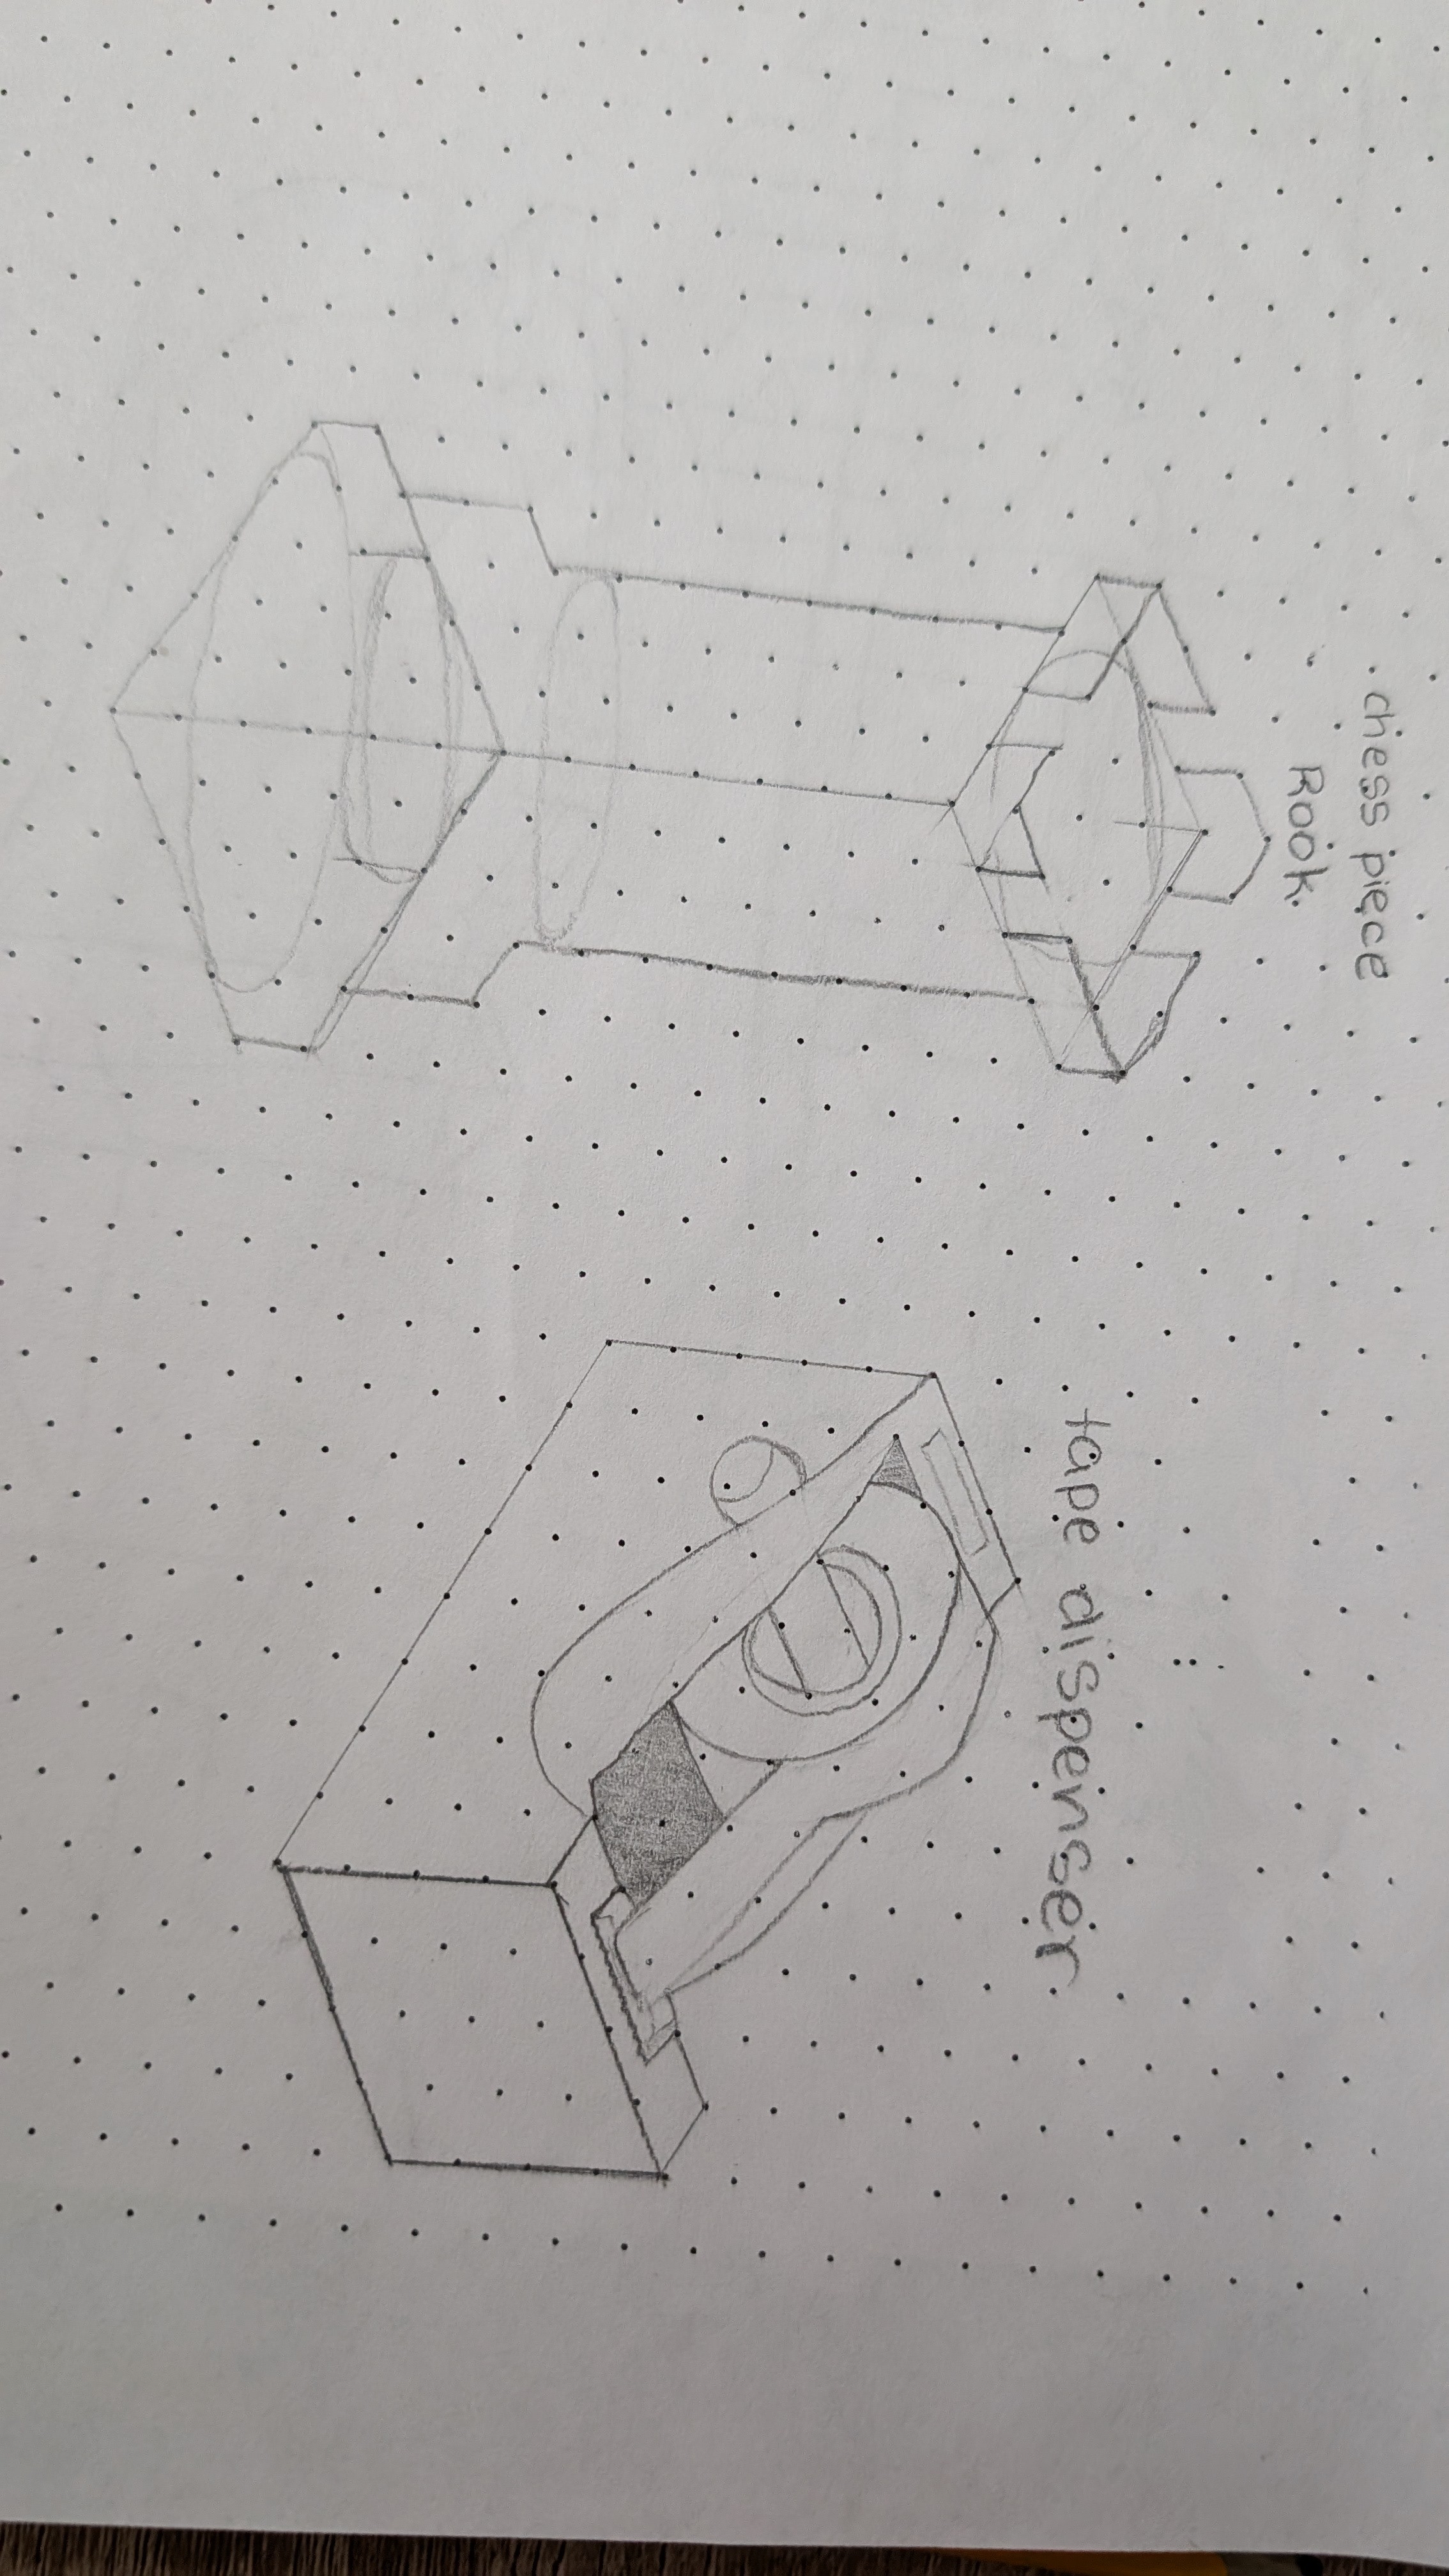 chess piece
Rook
tape dispenser